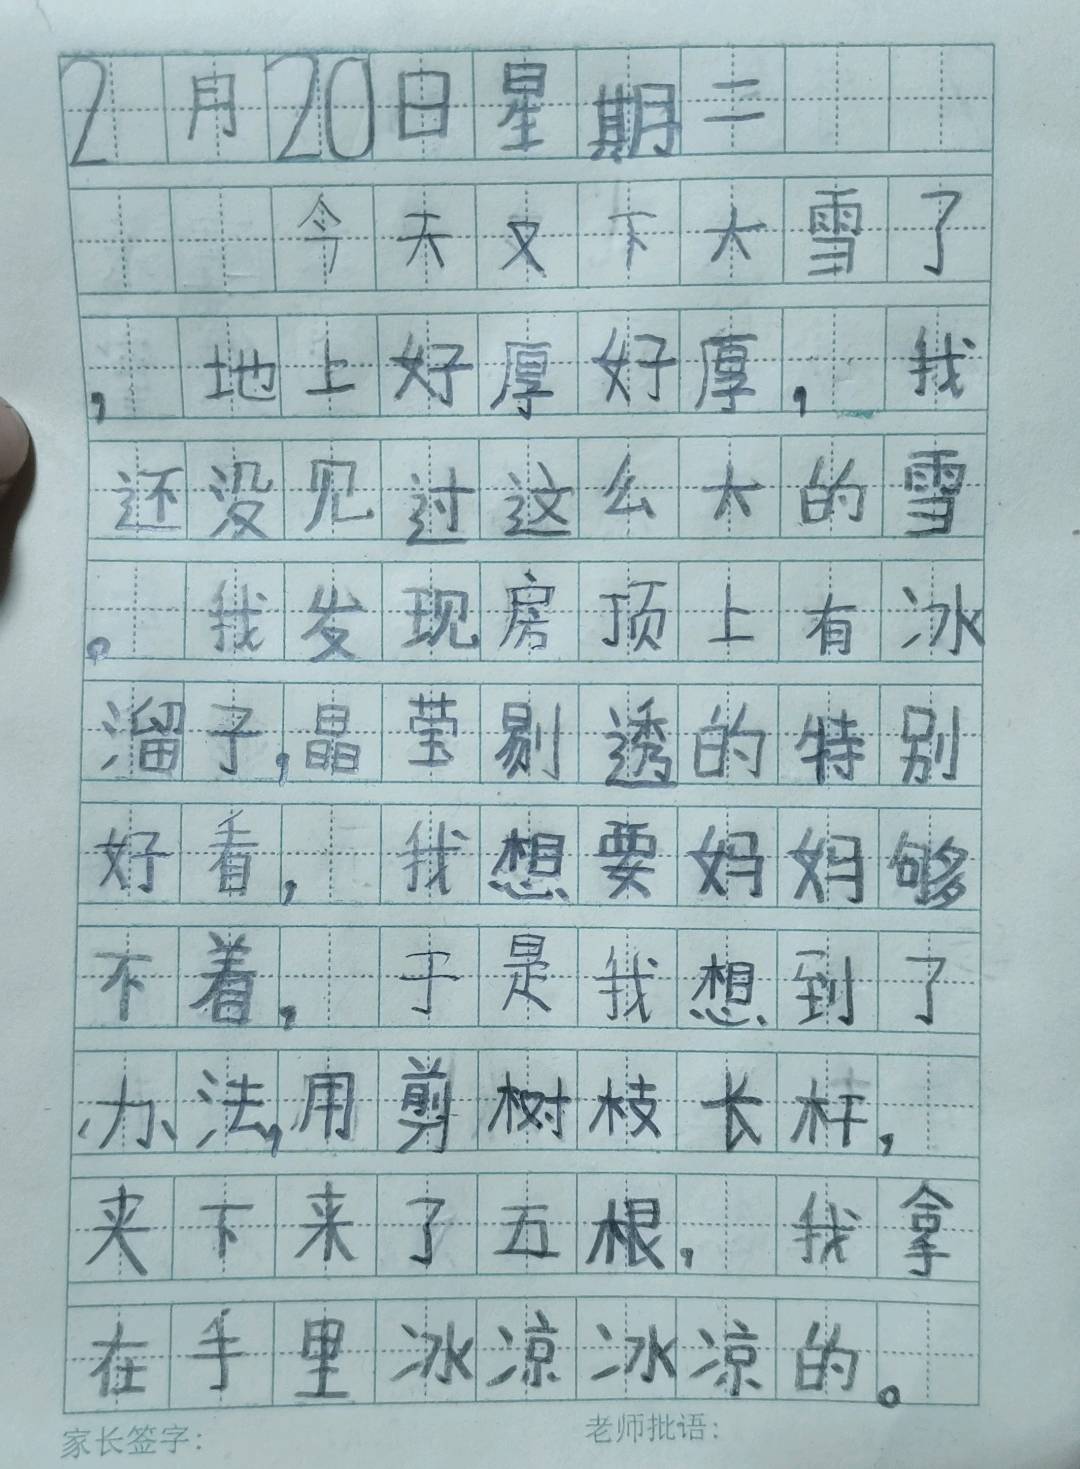 2月20日星期二
今天又下大雪了
，地上好厚好厚，我
还没见过这么大的雪
。我发现房顶上有冰
溜子，晶莹剔透的特别
好看，我想要妈妈够
不着，于是我想到了
办法，用剪树枝长杆，
夹下来了五根，我拿
在手里冰凉冰凉的。
家长签字： 老师批语：